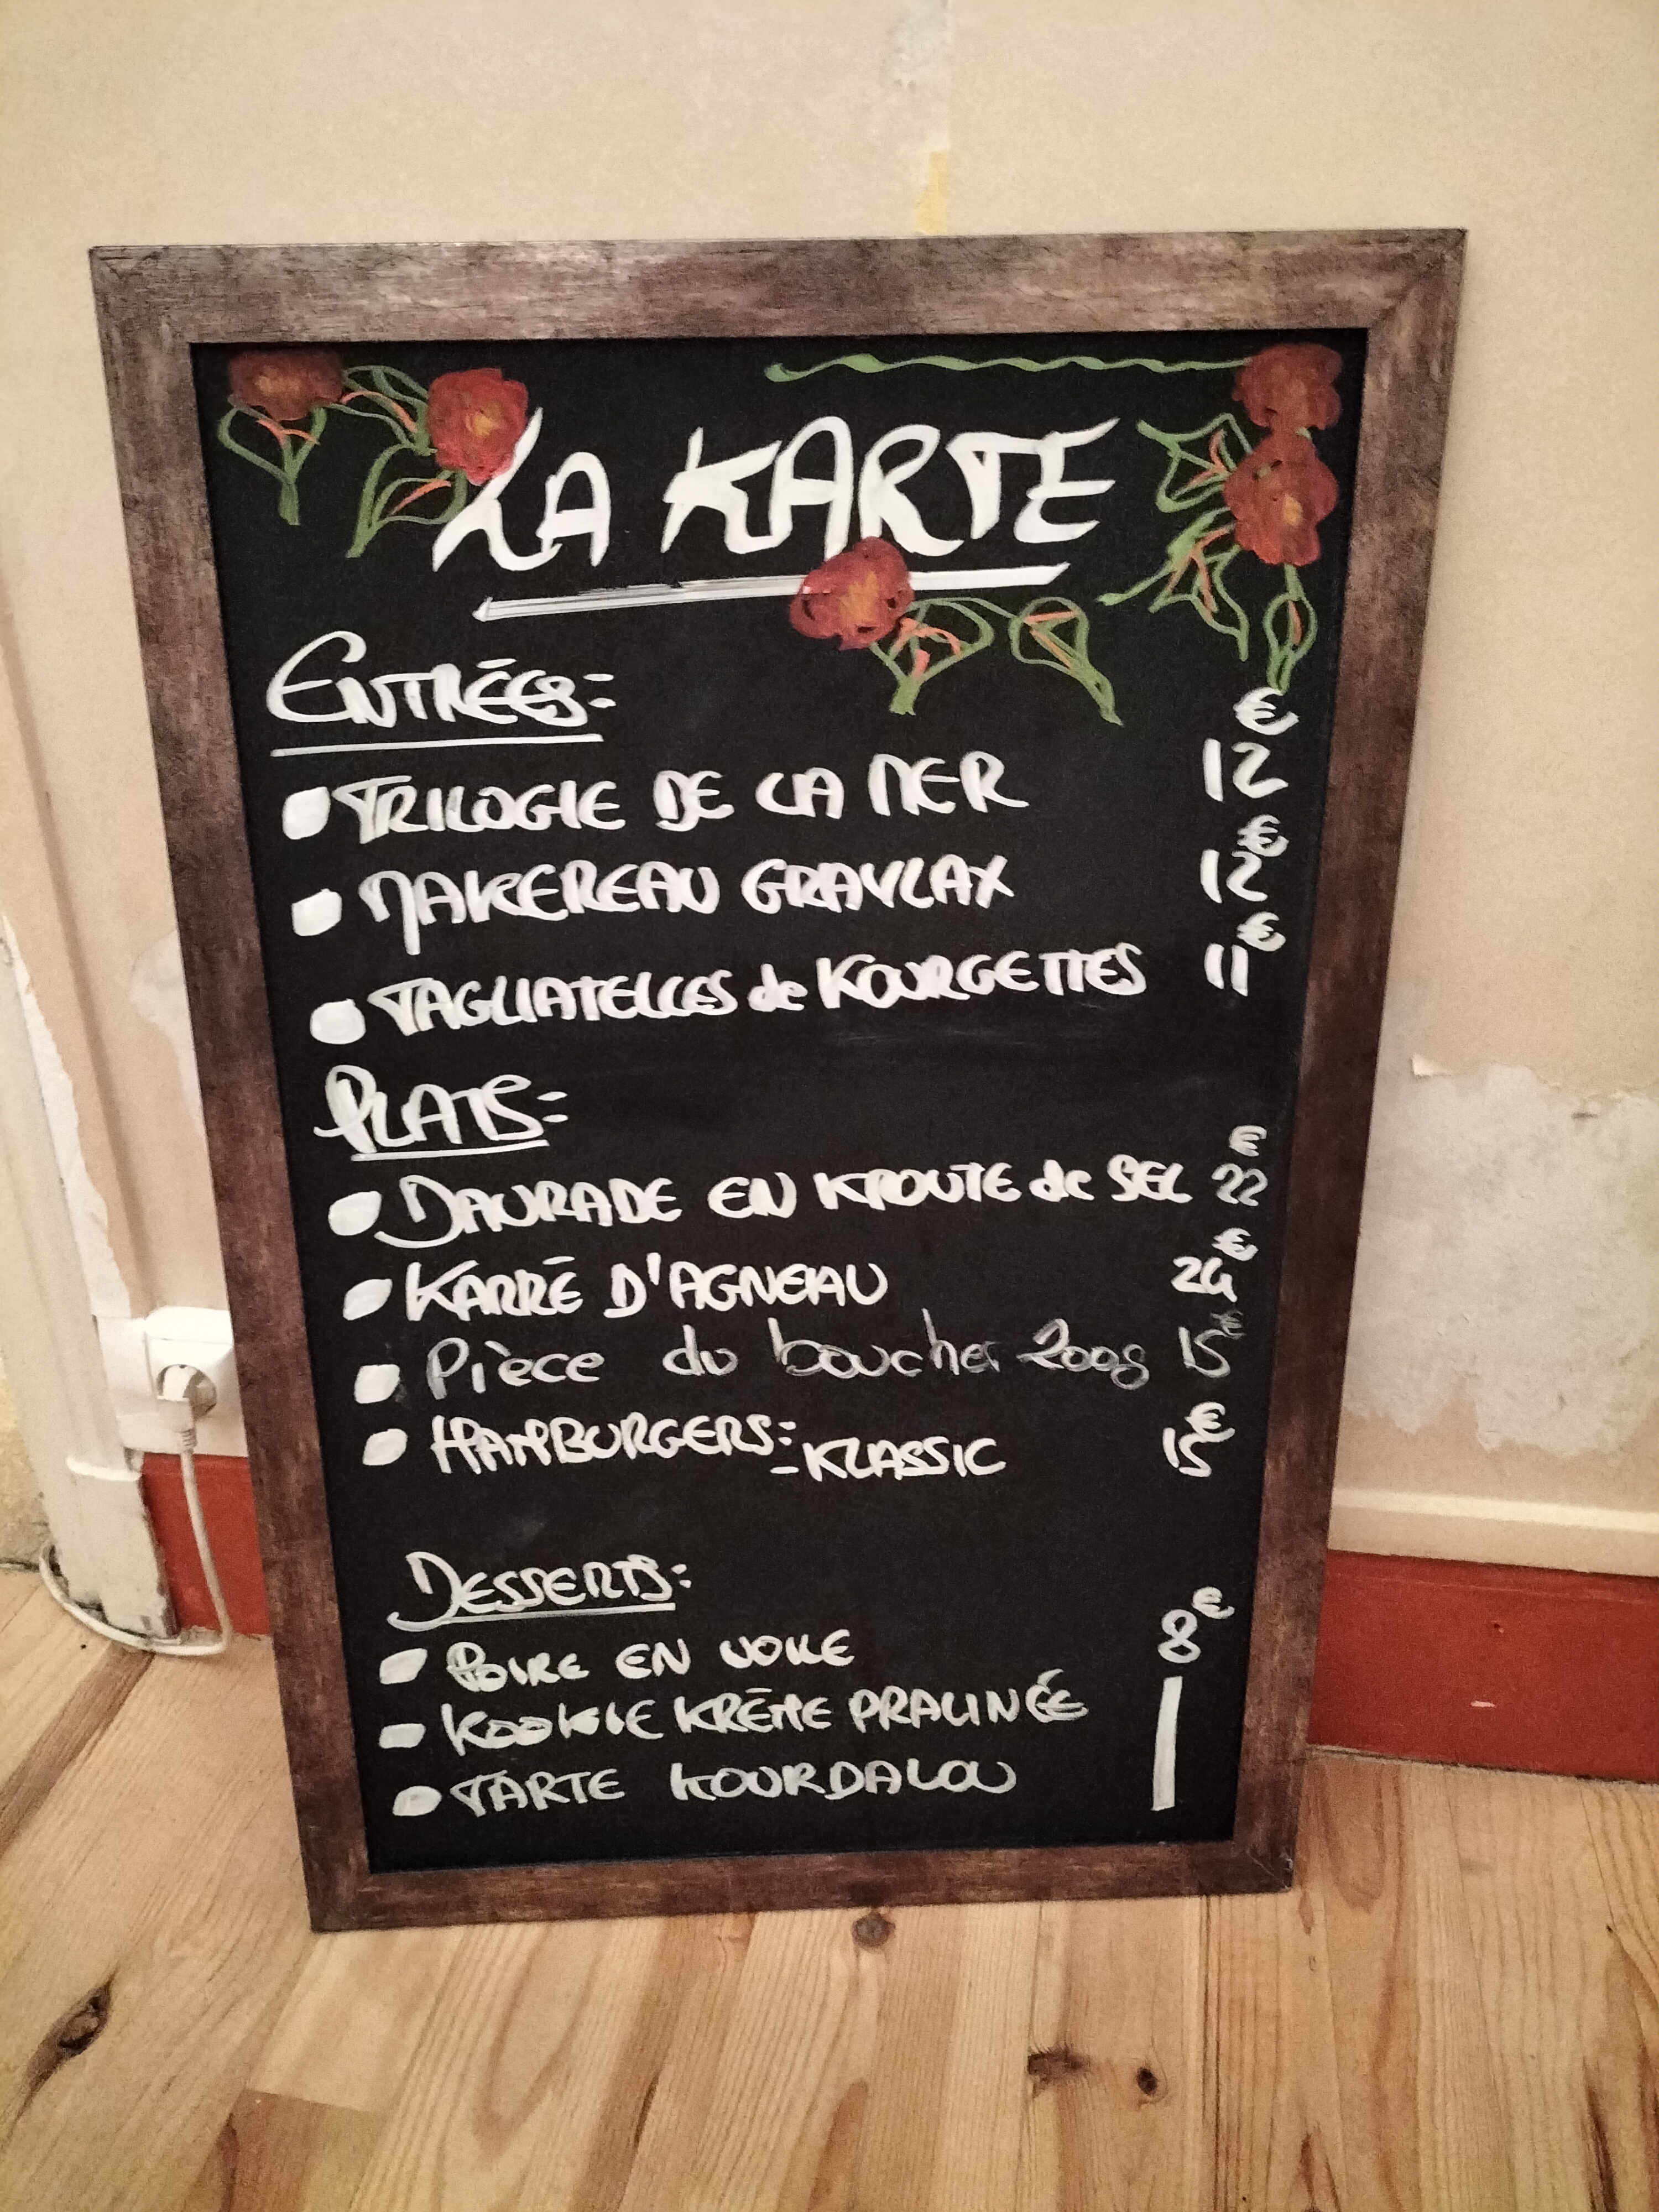 LA KARTE
ENTRÉES:
TRILOGIE DE LA MER 12€
MAKEREAU GRAVLAX 12€
TAGLIATELLES de KOURGETTES 11€
PLATS:
DAURADE EN KROUTE de SEL 22€
KARRÉ D'AGNEAU 24€
Pièce du boucher 200g 15€
HAMBURGERS: - KLASSIC 15€
DESSERTS:
POIRE EN VOILE 8€
KOOKIE KRÈME PRALINÉE
TARTE KOURDALOU